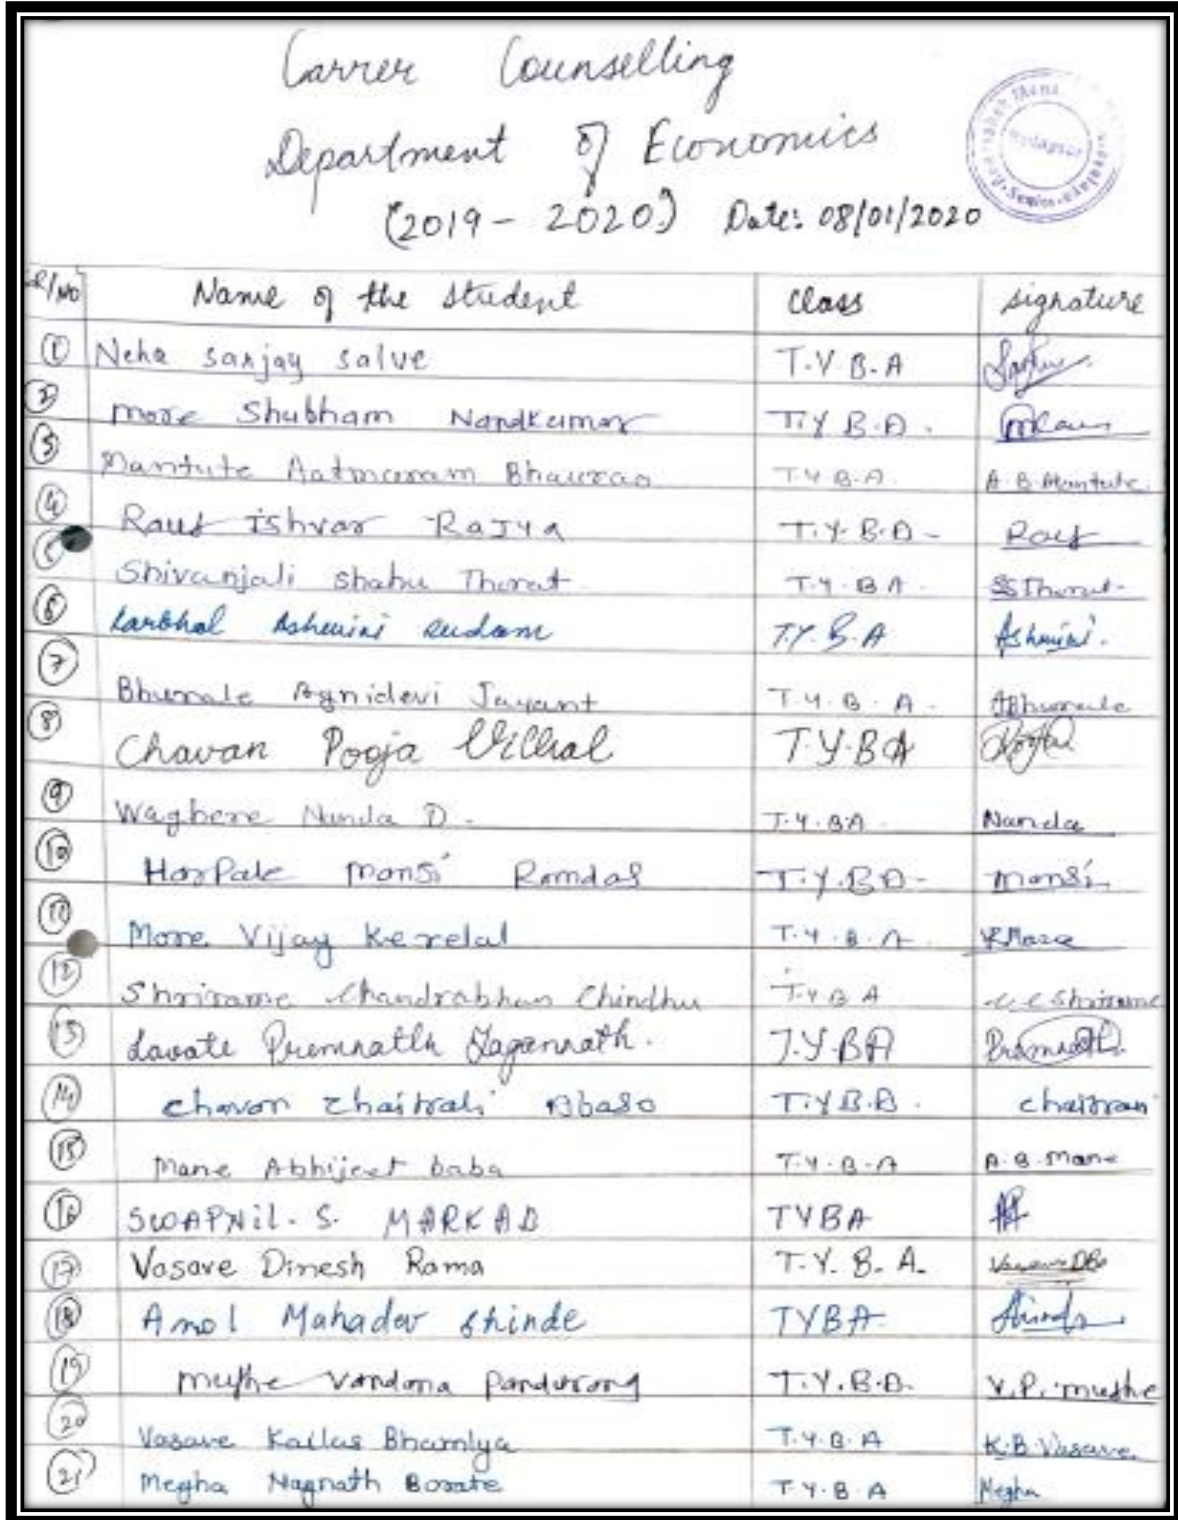 Carrer Counselling
Department of Economics
(2019 - 2020) Date: 08/01/2020
Sr/No Name of the student class signature
1 Neha sanjay salve T.Y.B.A
2 more Shubham Nandkumar T.Y B.A.
3 Mantute Aatmaram Bhaurao T.Y B.A. A.B.Mantute.
4 Raut ishvar RaJya T.Y.B.A - Raut
5 Shivanjali shahu Thorat T.Y.BA. SSThorat-
6 Ashwini sudam T.Y.B.A Ashwini.
7 Bhumale Agnidevi Jayant T.Y.B.A. ABhumale
8 Chavan Pooja Vitthal T.Y.BA Pooja
9 Waghere Nanda D. T.Y.BA Nanda
10 Harpale mansi Ramdas T.Y.BA- mansi
11 More Vijay Kerelal T.Y.B.A. VKMore
12 Shrirame Chandrabhan Chindhu T.Y B A c c Shrirame
13 Lavate Premnath Jagannath. T.Y.BA Premnath.
14 chavan Chaitrali Abaso T.Y B.A. chaitrali
15 Mane Abhijeet baba T.Y.B.A A.B.Mane
16 SWAPNiL. S. MARKAD TYBA
17 Vasave Dinesh Rama T.Y. B. A. Vasave DR
18 Amol Mahadev Shinde TYBA Shinde
19 muthe Vandana Pandurang T.Y.B.A. V.P. muthe
20 Vasave Kailas Bhamlya T.Y.B.A K.B Vasave
21 Megha Nagnath Borate T.Y.B.A Megha